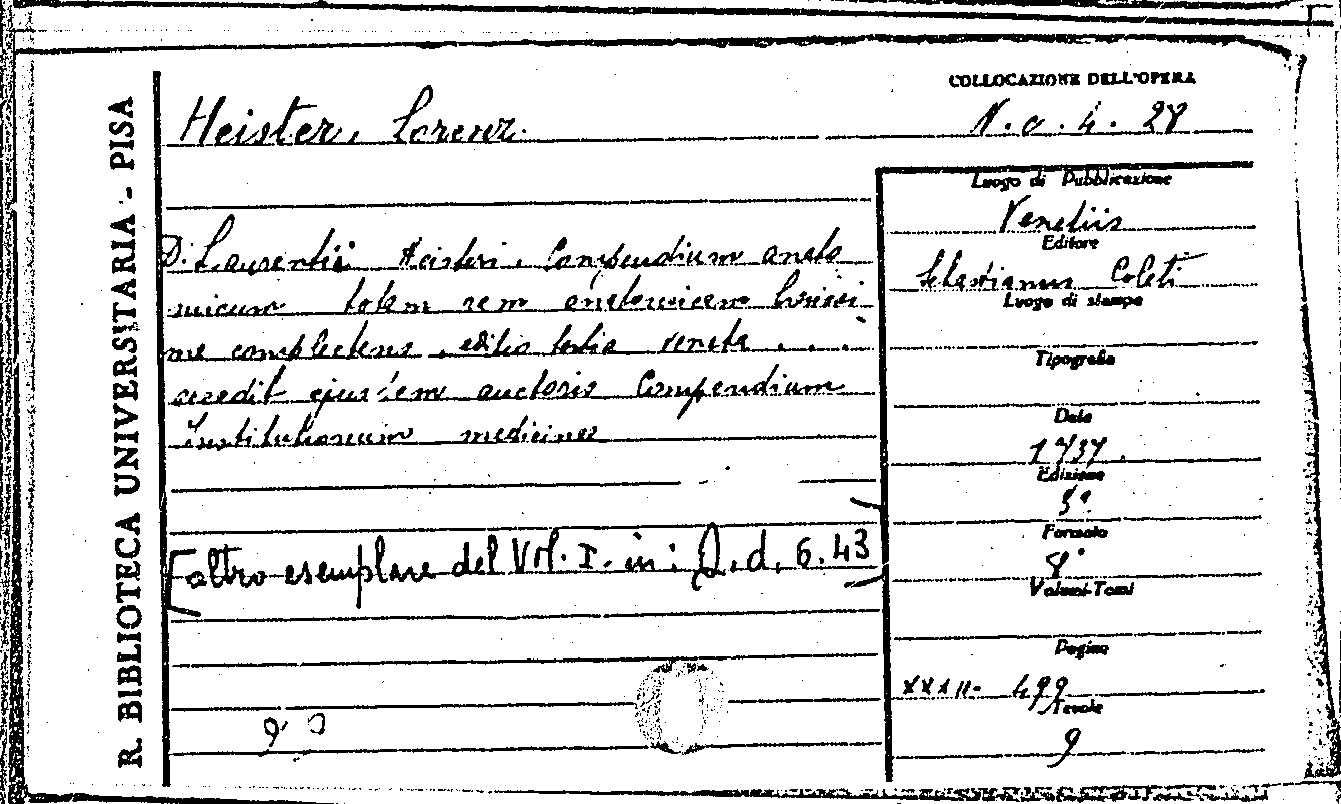 R. BIBLIOTECA UNIVERSITARIA - PISA
COLLOCAZIONE DELL'OPERA
Heister, Lorenz.
N. a. 4. 28
D. Laurentii Heisteri, Compendium anato
micum totam rem anatomicam brevissi
me complectens, editio tertia veneta . . .
accedit ejusdem auctoris Compendium
Institutionum medicinae
[altro esemplare del Vol. I. in: Q. d. 6. 43]
Luogo di Pubblicazione
Venetiis
Editore
Sebastianus Coleti
Luogo di stampa
Tipografia
Data
1737.
Edizione
3ª
Formato
8°
Volumi-Tomi
Pagine
XXXII- 499
Tavole
9